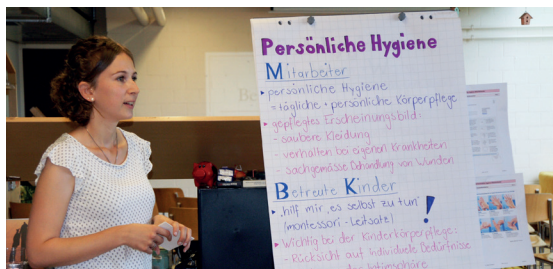 Persönliche Hygiene
Mitarbeiter
▸ persönliche Hygiene
= tägliche · persönliche Körperpflege
▸ gepflegtes Erscheinungsbild
- saubere Kleidung
- verhalten bei eigenen Krankheiten
- sachgemässe Behandlung von Wunden
Betreute Kinder
▸ "hilf mir, es selbst zu tun"
(montessori-Leitsatz) !
▸ Wichtig bei der Kinderkörperpflege:
- Rücksicht auf individuelle Bedürfnisse
Intimsphäre